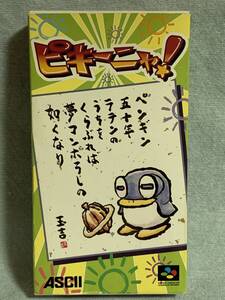 ピキーニャ!
ペンギン
五十年
ラテンの
うちを
くらぶれば
夢コンボらしの
如くなり
玉吉
ASCII